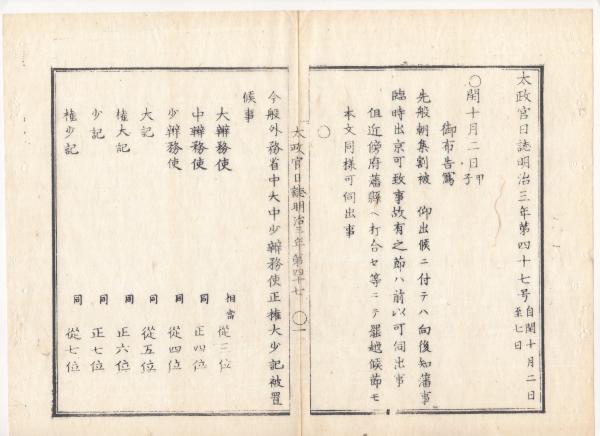 太政官日誌明治三年第四十七号 自閏十月二日 至七日
○閏十月二日 甲子
御布告寫
先般朝集割被 仰出候ニ付テハ向後知藩事
臨時出京可致事故有之節ハ前以可伺出事
但近傍府藩縣ヘ打合セ等ニテ罷越候節モ
本文同樣可伺出事
○
太政官日誌明治三年第四十七 ○一
今般外務省中大中少辨務使正權大少記被置
候事
大辨務使 相當 從三位
中辨務使 同 正四位
少辨務使 同 從四位
大記 同 從五位
權大記 同 正六位
少記 同 正七位
權少記 同 從七位